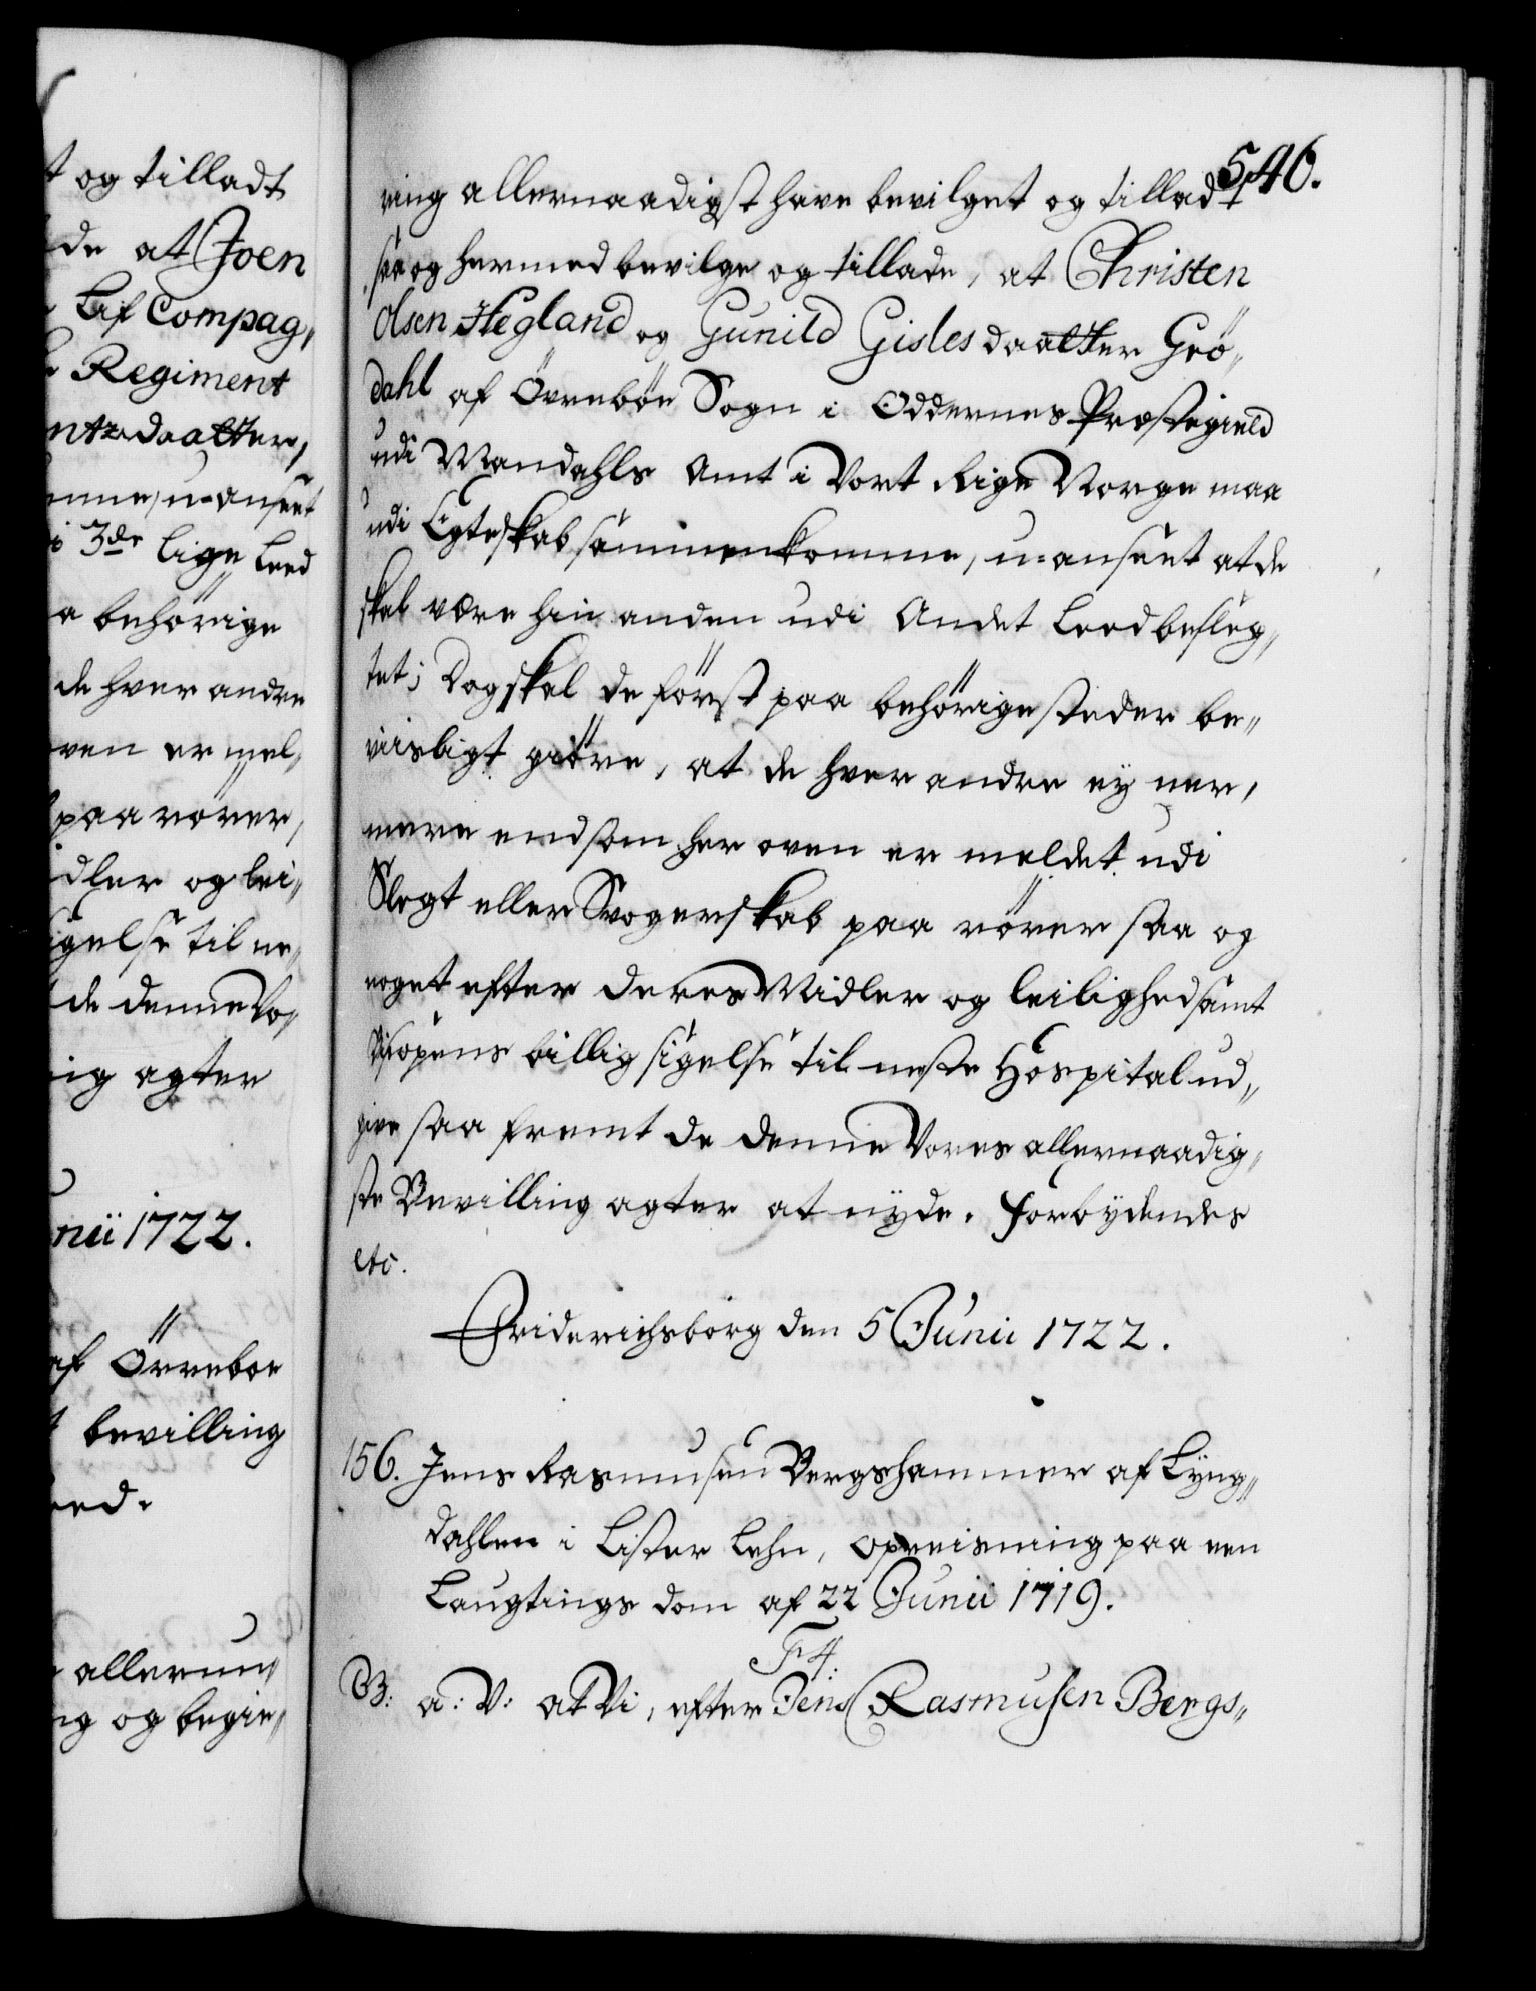 t og tilladt
de at Joen
Lif Compag,
Regiment
ntzdaatter,
mme, u-anseet
i 3de lige Leed
a behörige
de hver andre
oven er mel,
paa rörer,
idler og lei,,
igelse til ne,,
de denne Vo,,
ig agter
nii 1722.
af Öfreboe
bevilling
eed.
allerun,,
ng og begie,,
546.
ring allernaadigst have bevilget og tilladt
saa og hermed bevilge og tillade, at Christen
Olsen Hegland og Gunild Gislesdaatter Grö,,
dahl af Övreböe Sogn i Oddernes Præstegield
udi Mandahls Amt i Vort Rige Norge maa
udi Egteskab sammenkomme, u-anseet at de
skal være hin anden udi Andet Leed beslæg,,
tet; Dog skal de först paa behörige steder be,,
viisligt giöre, at de hver andre ey ner,
mere end som her oven er meldet udi
Slegt eller Svogerskab paa rörer saa og
noget efter deres Midler og leilighed samt
Bisopens billig sigelse til neste Hospital ud,,
give saa fremt de denne Vores allernaadig,,
ste Bevilling agter at nyde. Forbydendes
etc.
Friderichsborg den 5 Junii 1722.
156. Jens Rasmusen Bergshammer af Lyng,,
dahlen i Lister Lehn, opreisning paa een
Laugtings dom af 22 Junii 1719.
F 4.
G: a: V: at Vi, efter Jens Rasmusen Bergs,,